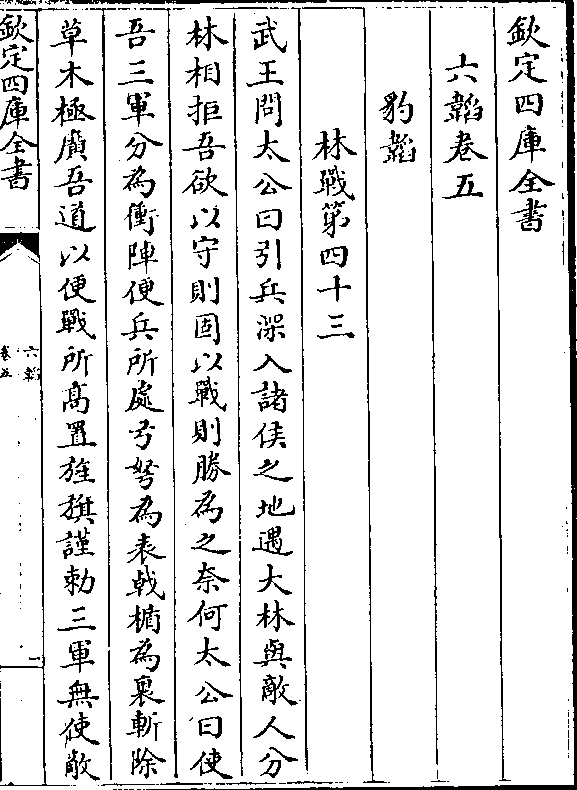 欽定四庫全書
六韜卷五
豹韜
林戰第四十三
武王問太公曰引兵深入諸侯之地遇大林與敵人分
林相拒吾欲以守則固以戰則勝為之奈何太公曰使
吾三軍分為衝陣便兵所處弓弩為表戟楯為裏斬除
草木極廣吾道以便戰所高置旌旗謹勅三軍無使敵
欽定四庫全書
六韜
卷五
一